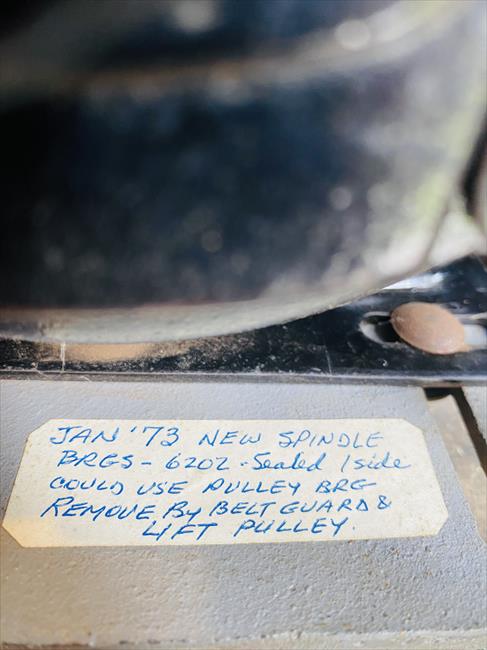 JAN '73 NEW SPINDLE
BRGS - 6202 - Sealed 1 side
COULD USE PULLEY BRG
REMOVE By BELT GUARD &
LIFT PULLEY.